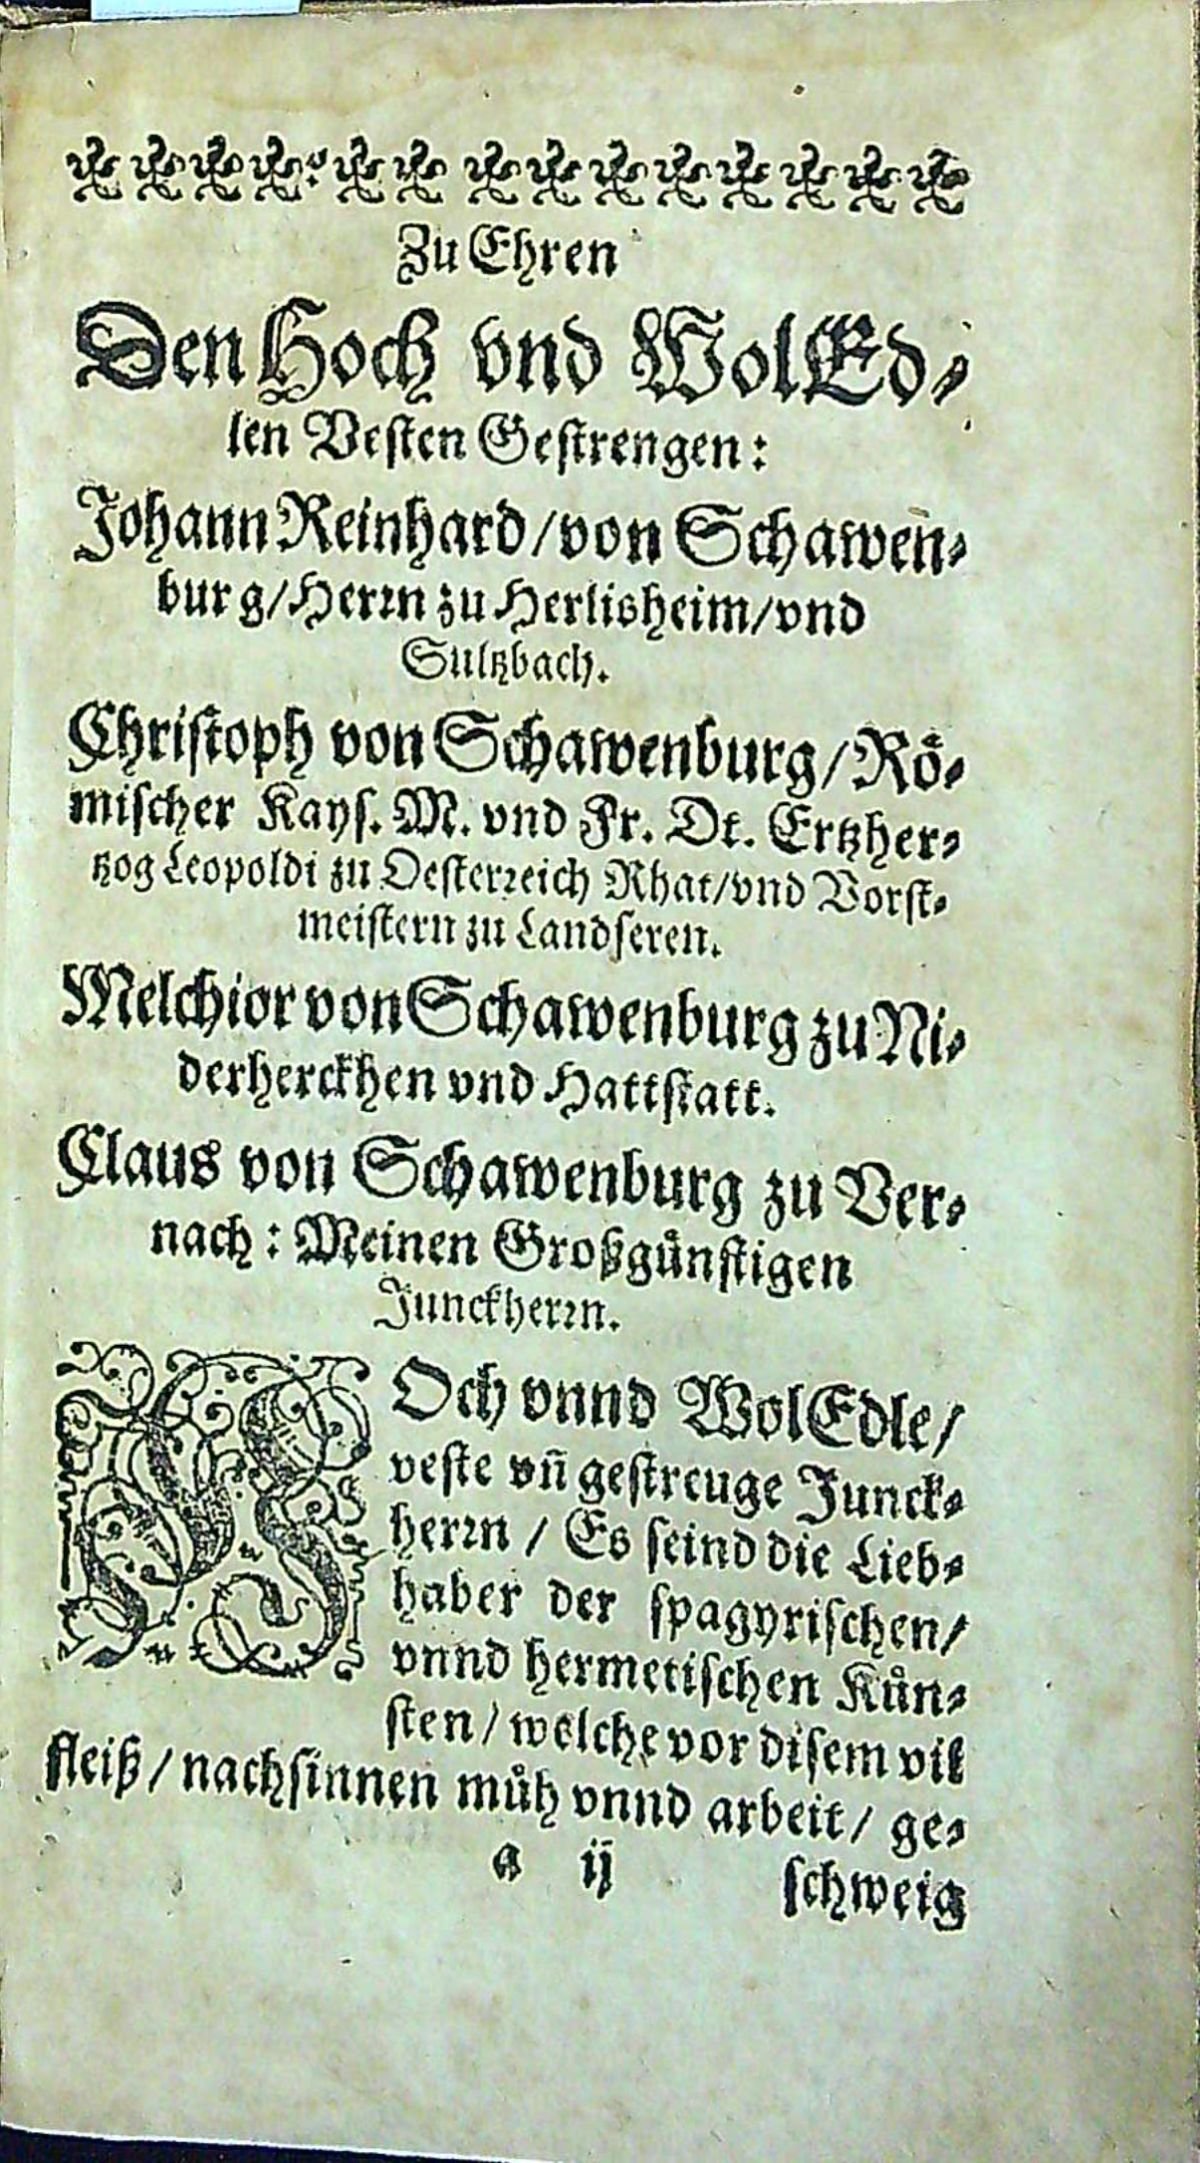 Zu Ehren
Den Hoch vnd WolEd⸗
len Vesten Gestrengen:
Johann Reinhard/von Schawen⸗
burg/Herrn zu Herlisheim/vnd
Sultzbach.
Christoph von Schawenburg/Rö⸗
mischer Kays. M. vnd Fr. Dt. Ertzher⸗
tzog Leopoldi zu Oesterreich Rhat/vnd Vorst⸗
meistern zu Landseren.
Melchior von Schawenburg zu Ni⸗
derherckhen vnd Hattstatt.
Claus von Schawenburg zu Ver⸗
nach: Meinen Großgünstigen
Junckherrn.
HOch vnnd WolEdle/
veste vn̄ gestreuge Junck⸗
herrn / Es seind die Lieb⸗
haber der spagyrischen/
vnnd hermetischen Kün⸗
sten/welche vor disem vil
fleiß/nachsinnen mu̍h vnnd arbeit/ ge⸗
a ij schweig